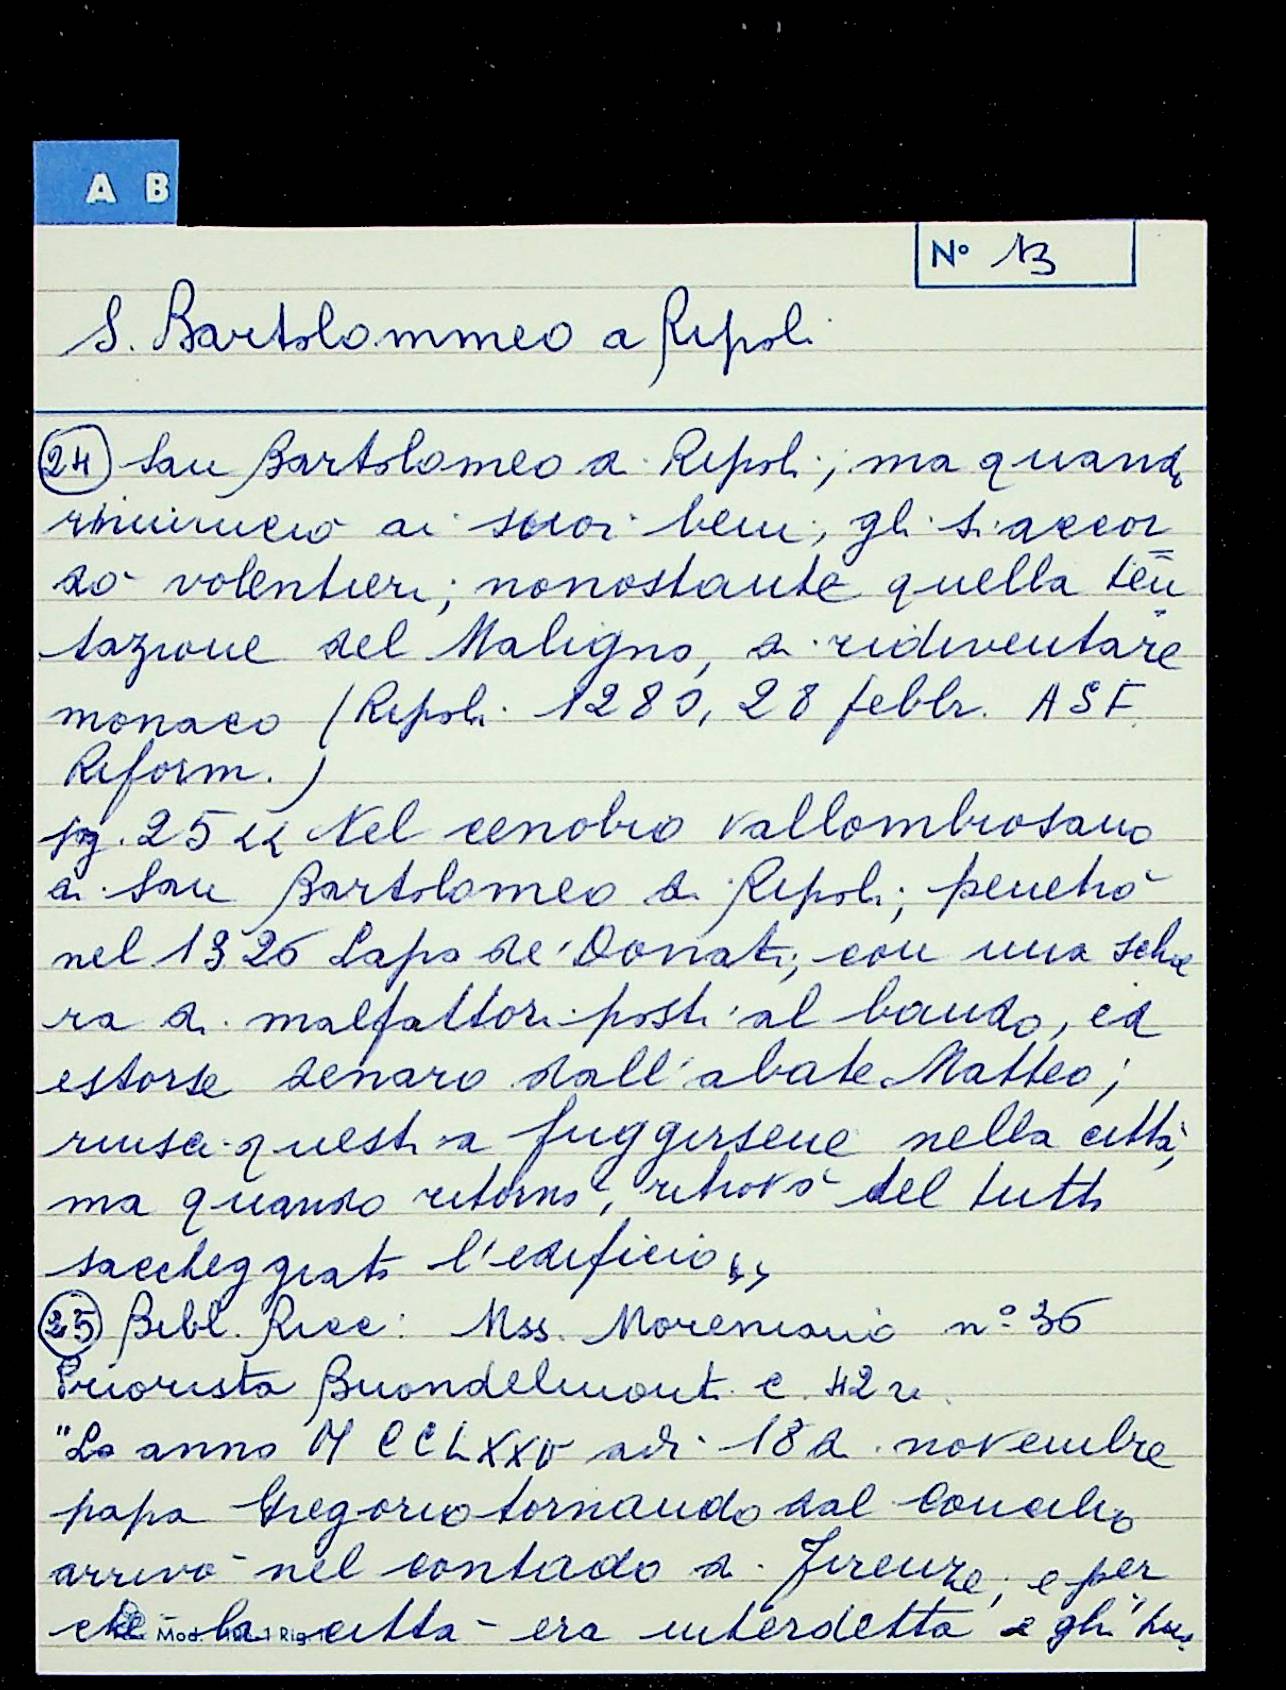 A B
N° 13
S. Bartolommeo a Ripoli
24 San Bartolomeo a Ripoli, ma quando
rinunciò ai suoi beni, gli si accor
dò volentieri, nonostante quella ten
tazione del Maligno, di ridiventare
monaco (Ripoli 1280, 28 febbr. ASF
Riform.)
pg. 25 << Nel cenobio vallombrosano
di San Bartolomeo di Ripoli, penetrò
nel 1326 Lapo de' Donati, con una schie
ra di malfattori posti al bando, ed
estorse denaro dall'abate Matteo;
riuscì questi a fuggirsene nella città,
ma quando ritornò, ritrovò del tutto
saccheggiato l'edificio>>
25 Bibl. Ricc: Mss. Moreniano n° 36
Priorista Buondelmonti c. 42
"Lo anno MCCLXXV adì 18 di novembre
papa Gregorio tornando dal Concilio
arrivò nel contado di Firenze, e per
chè la città era interdetta e gli